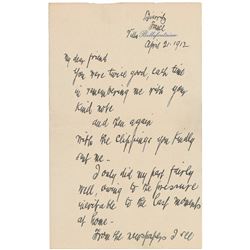 Biarritz
France
Villa Bellefontaine
April 21. 1912
My dear friend
You were twice good, each time
in remembering me with your
kind note
and then again
with the clippings you kindly
sent me –
I only did my part fairly
well, owing to the pressure
inevitable to the last moments
at home –
From the newspapers I see